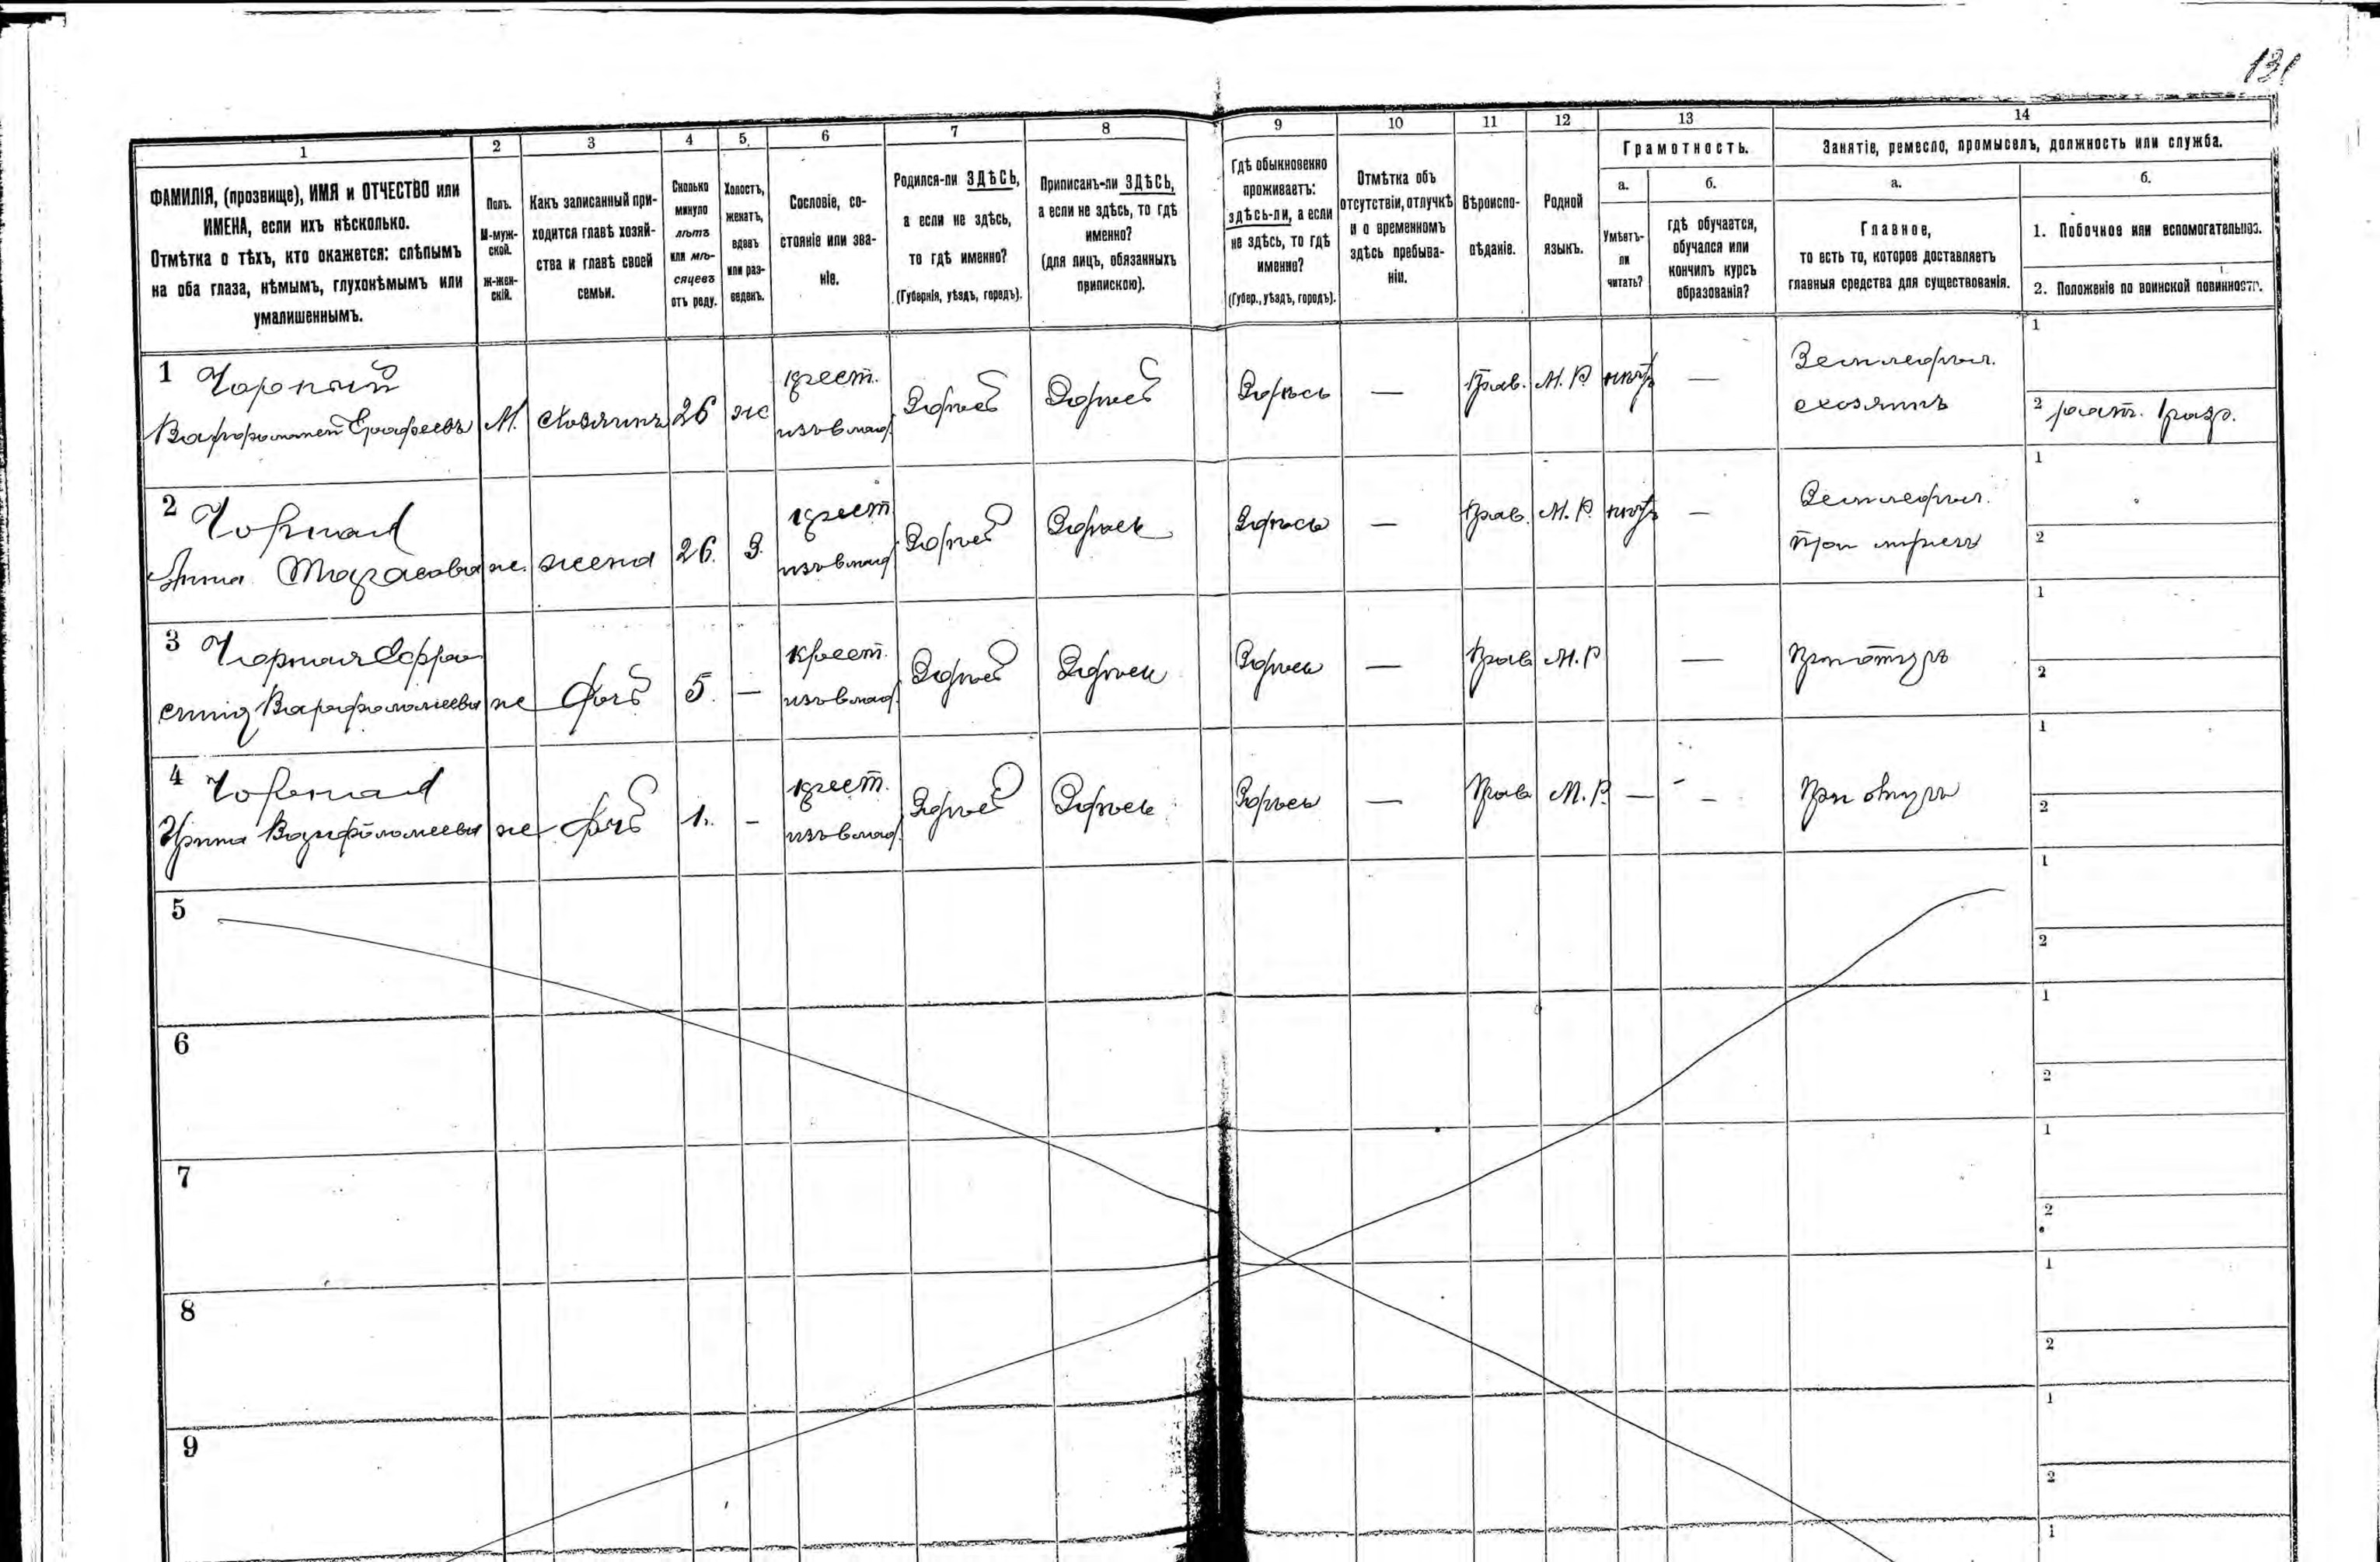 131
1
2
3
4
5.
6
7
8
9
10
11
12
13
14
ФАМИЛІЯ, (прозвище), ИМЯ и ОТЧЕСТВО или
ИМЕНА, если ихъ нѣсколько.
Отмѣтка о тѣхъ, кто окажется: слѣпымъ
на оба глаза, нѣмымъ, глухонѣмымъ или
умалишеннымъ.
Полъ.
М-муж-
ской.
Ж-жен-
скій.
Какъ записанный при-
ходится главѣ хозяй-
ства и главѣ своей
семьи.
Сколько
минуло
лѣтъ
или мѣ-
сяцевъ
отъ роду.
Холостъ,
женатъ,
вдовъ
или раз-
веденъ.
Сословіе, со-
стояніе или зва-
ніе.
Родился-ли ЗДѢСЬ,
а если не здѣсь,
то гдѣ именно?
(Губернія, уѣздъ, городъ).
Приписанъ-ли ЗДѢСЬ,
а если не здѣсь, то гдѣ
именно?
(для лицъ, обязанныхъ
припискою).
Гдѣ обыкновенно
проживаетъ:
здѣсь-ли, а если
не здѣсь, то гдѣ
именно?
(Губер., уѣздъ, городъ).
Отмѣтка объ
отсутствіи, отлучкѣ
и о временномъ
здѣсь пребыва-
ніи.
Вѣроиспо-
вѣданіе.
Родной
языкъ.
Грамотность.
а.
Умѣетъ-
ли
читать?
б.
гдѣ обучается,
обучался или
кончилъ курсъ
образованія?
Занятіе, ремесло, промыселъ, должность или служба.
а.
Главное,
то есть то, которое доставляетъ
главныя средства для существованія.
б.
1. Побочное или вспомогательное.
2. Положеніе по воинской повинности.
1 Чорный
Варфоломей Ерофеевъ М. хозяинъ 26 ж
крест.
изъ влад.
Здѣсь Здѣсь Здѣсь — Прав. М. Р. нѣтъ —
Землед.
хозяинъ
1
2 рат. 1 разр.
2 Чорная
Анна Тарасова ж. жена 26. З.
крест
изъ влад
Здѣсь Здѣсь Здѣсь — Прав. М. Р. нѣтъ —
Землед.
при мужѣ
1
2
3 Чорная Евфро
синія Варфоломеева ж дочь 5. —
крест.
изъ влад.
Здѣсь Здѣсь Здѣсь — Прав М. Р —
При отцѣ
1
2
4 Чорная
Ирина Варфоломеева ж дочь 1. -
крест.
изъ влад.
Здѣсь Здѣсь Здѣсь — Прав М. Р. — —
При отцѣ
1
2
5
1
2
6
1
2
7
1
2
8
1
2
9
1
2
1